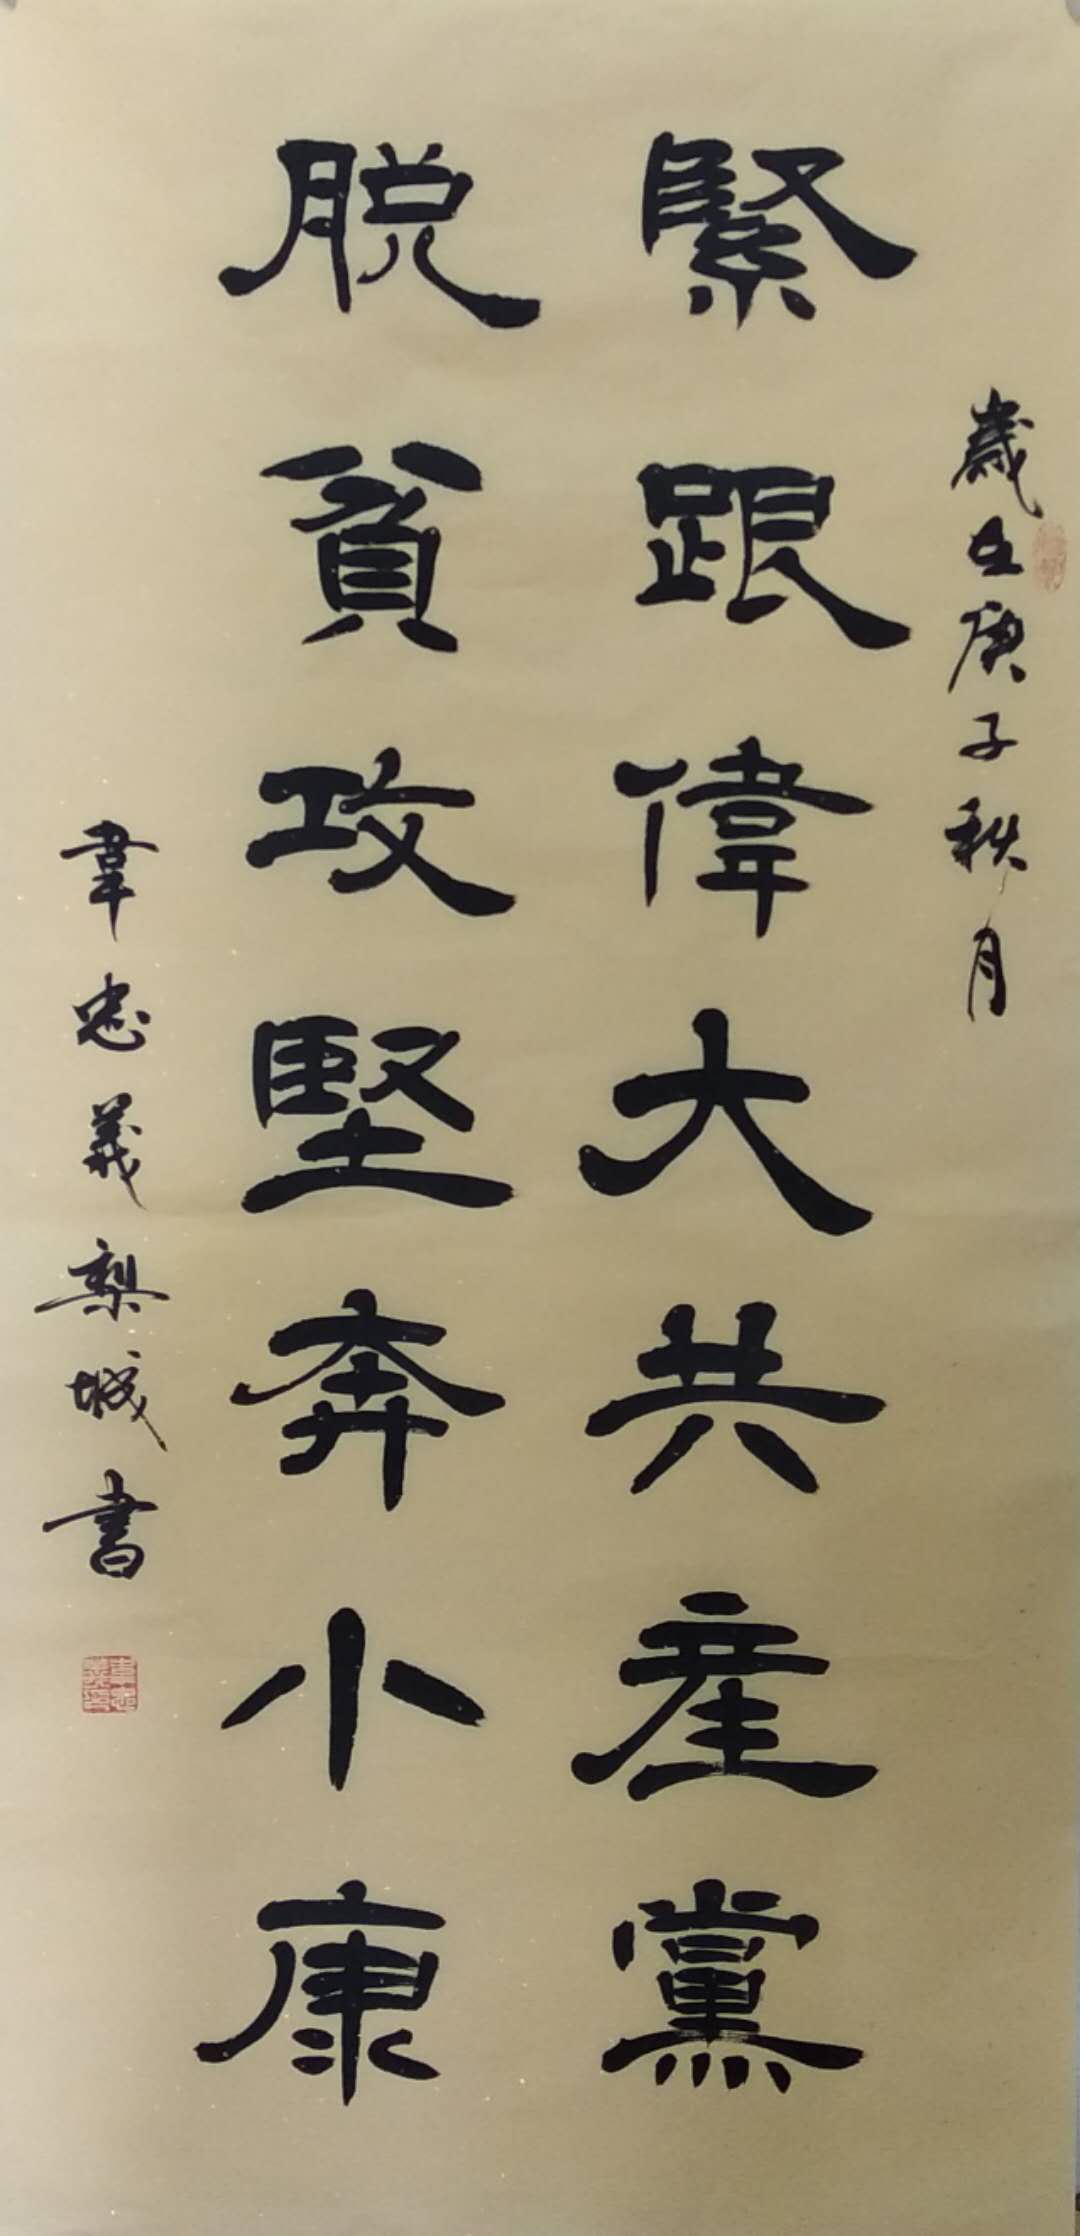 歲在庚子秋月
緊跟偉大共産黨
脫貧攻堅奔小康
韋忠義梨城書